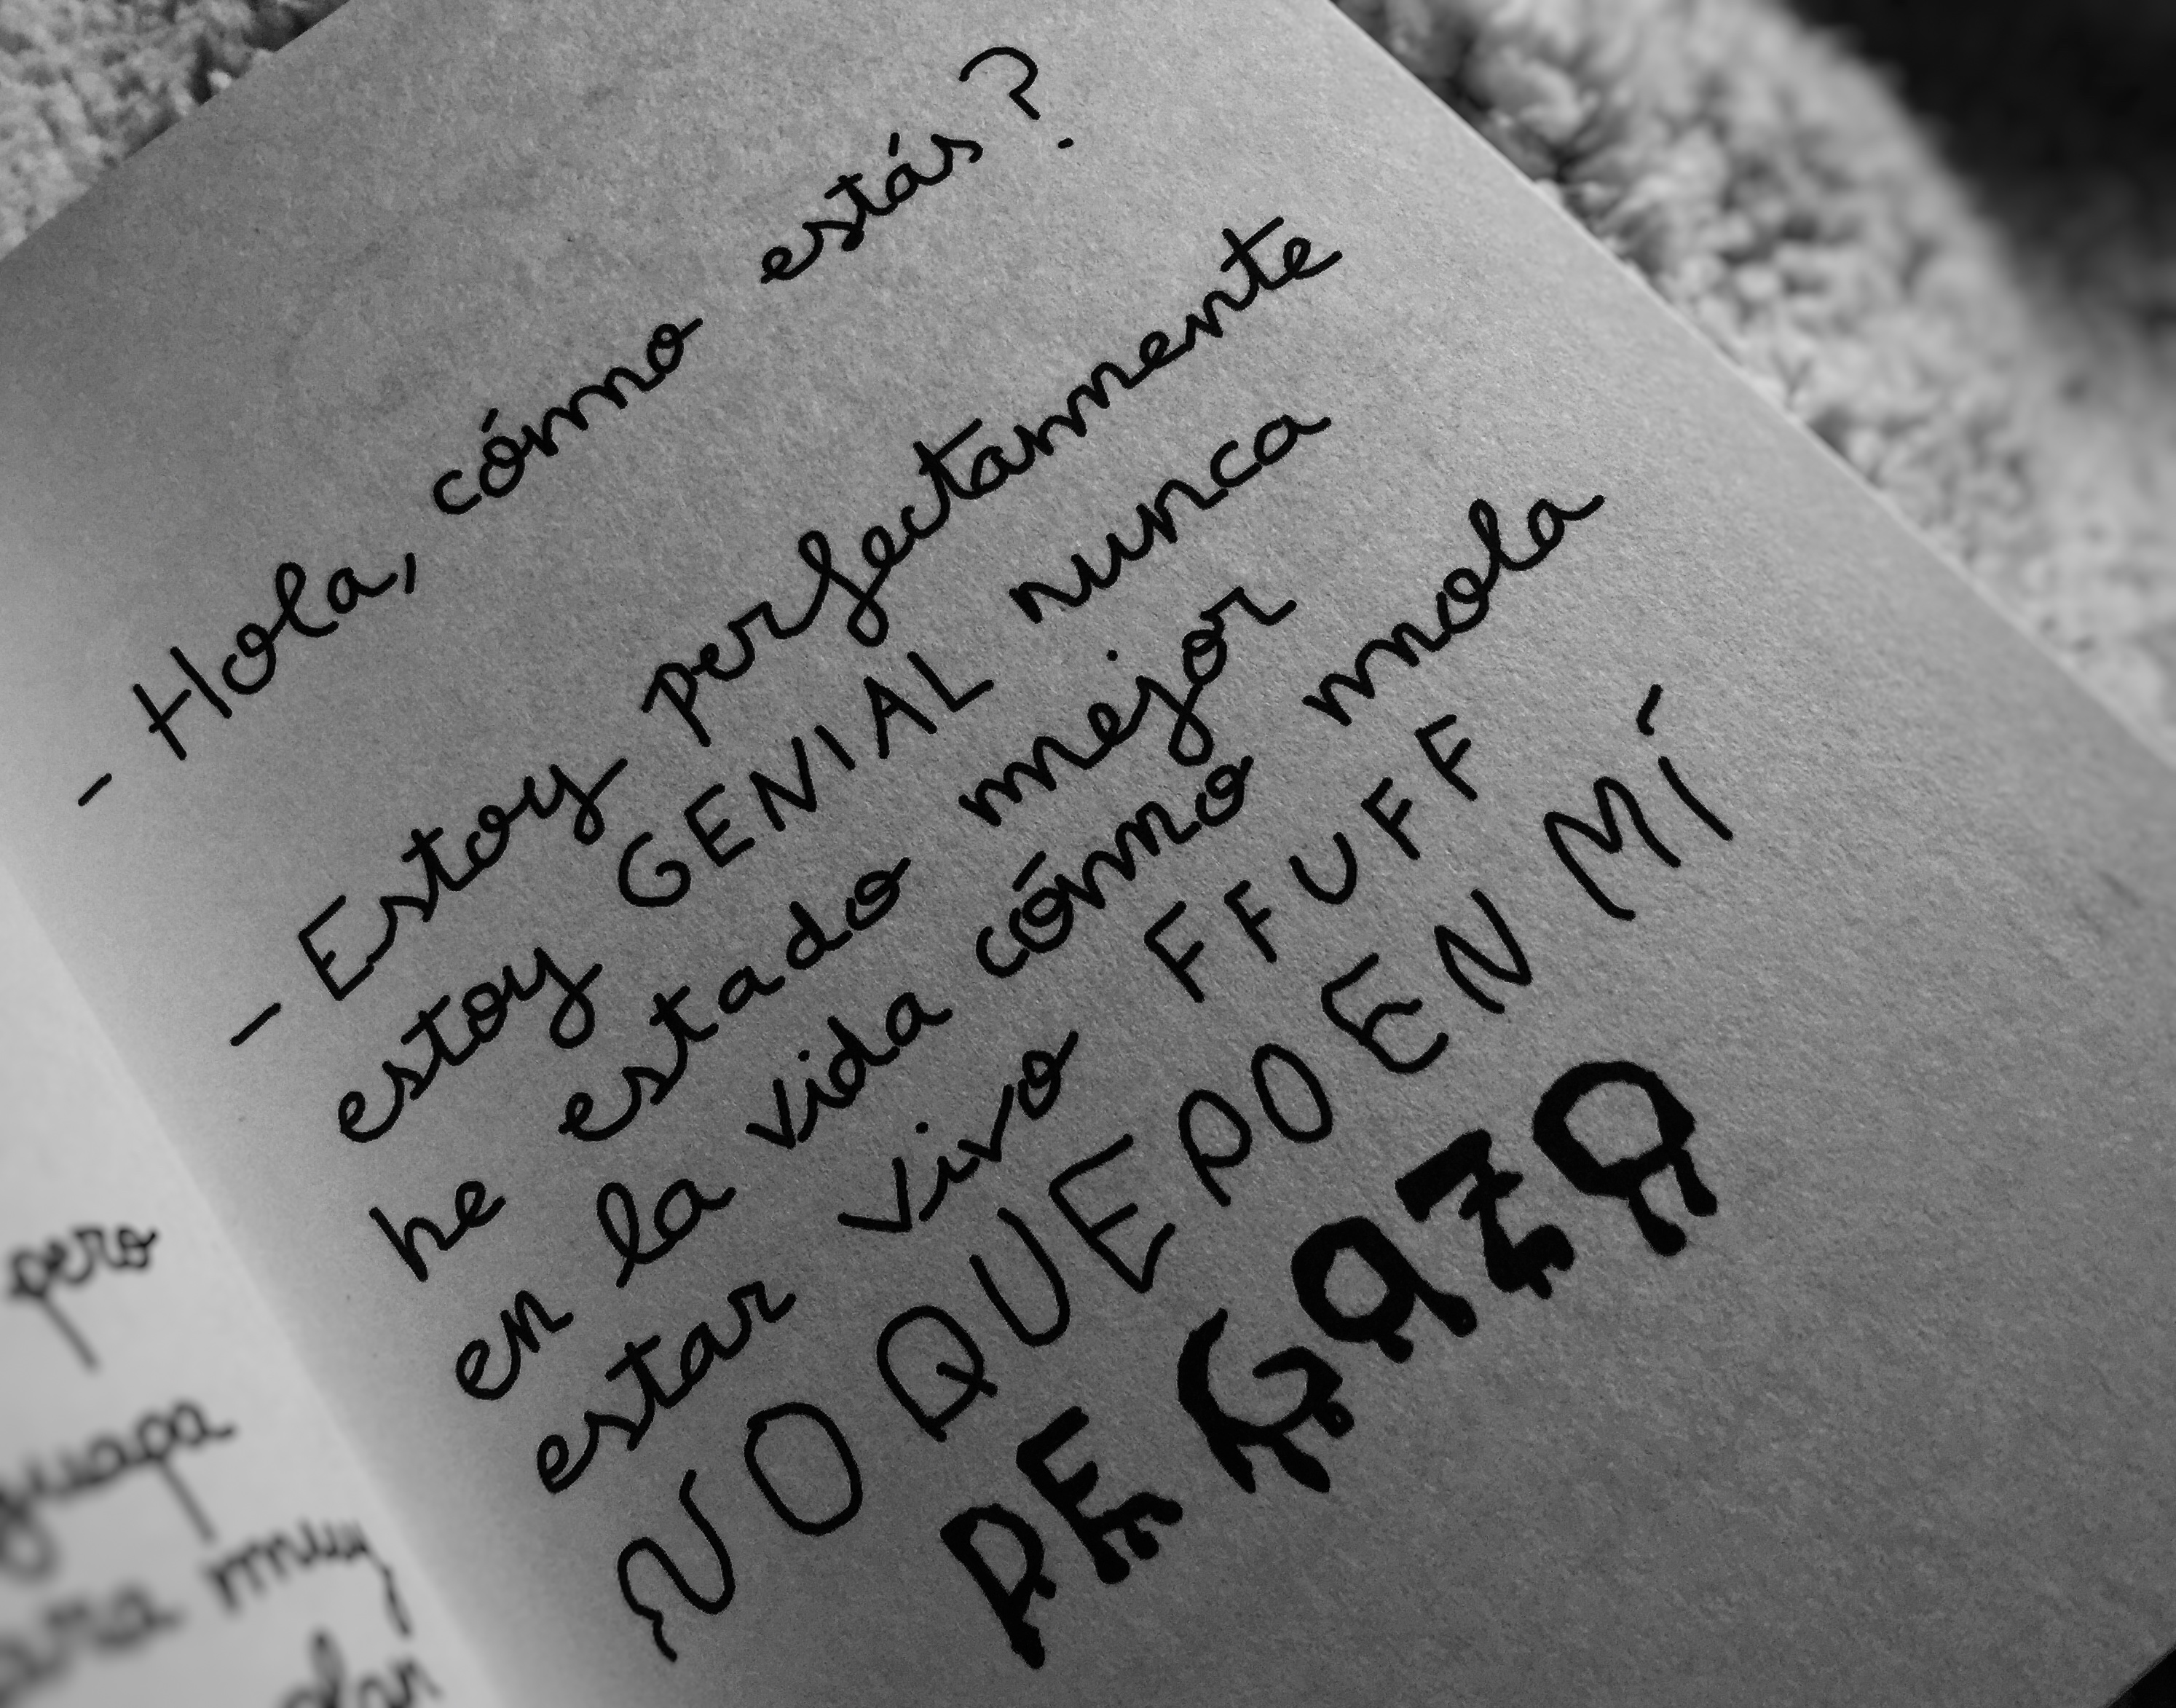 - Hola, cómo estás?
- Estoy perfectamente
estoy GENIAL nunca
he estado mejor
en la vida cómo mola
estar vivo FFUFF
NO QUEPO EN MÍ
DE GOZO
pero
guapa
para muy